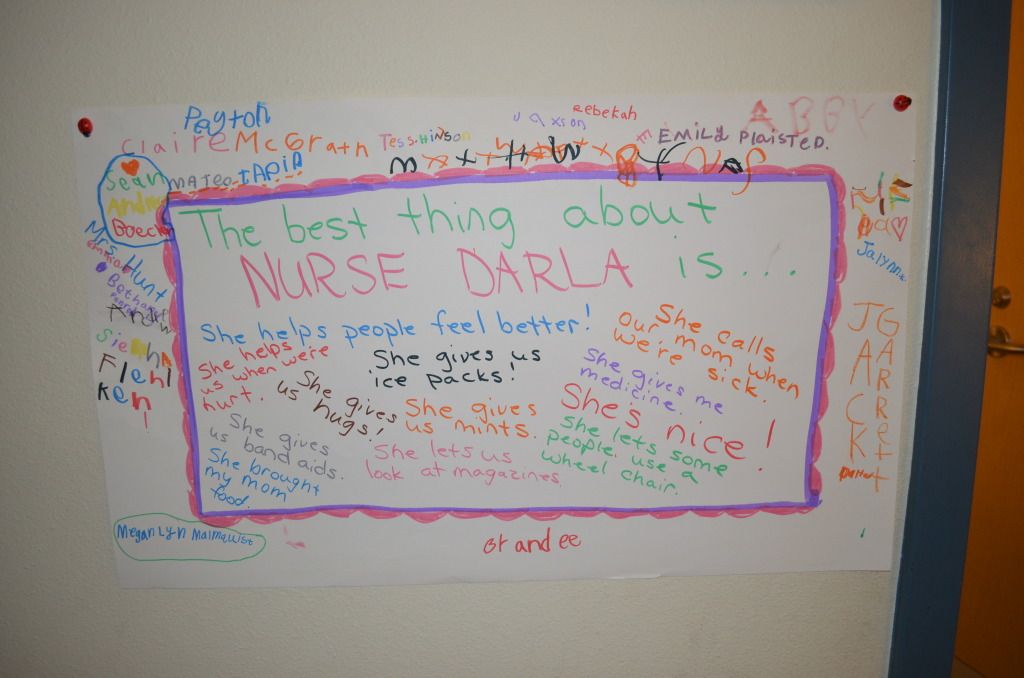 Payton
Claire McGrath
Tess
Jaxson
Rebekah
Emily Plaisted.
ABBY
Sean
Andrew
MATEO tAPiA
Mrs Hunt
Bethany
Jalynn
JACK
GARRett
The best thing about
NURSE DARLA is...
She helps people feel better!
She calls
our mom when
we're sick.
She helps
us when we're
hurt.
She gives us
ice packs!
She gives me
medicine.
She gives
us hugs!
She gives
us mints.
She's nice!
She gives
us band aids.
She lets us
look at magazines.
She lets some
people use a
wheel chair.
She brought
my mom
food.
Megan Lyn Malmquist
Brandee